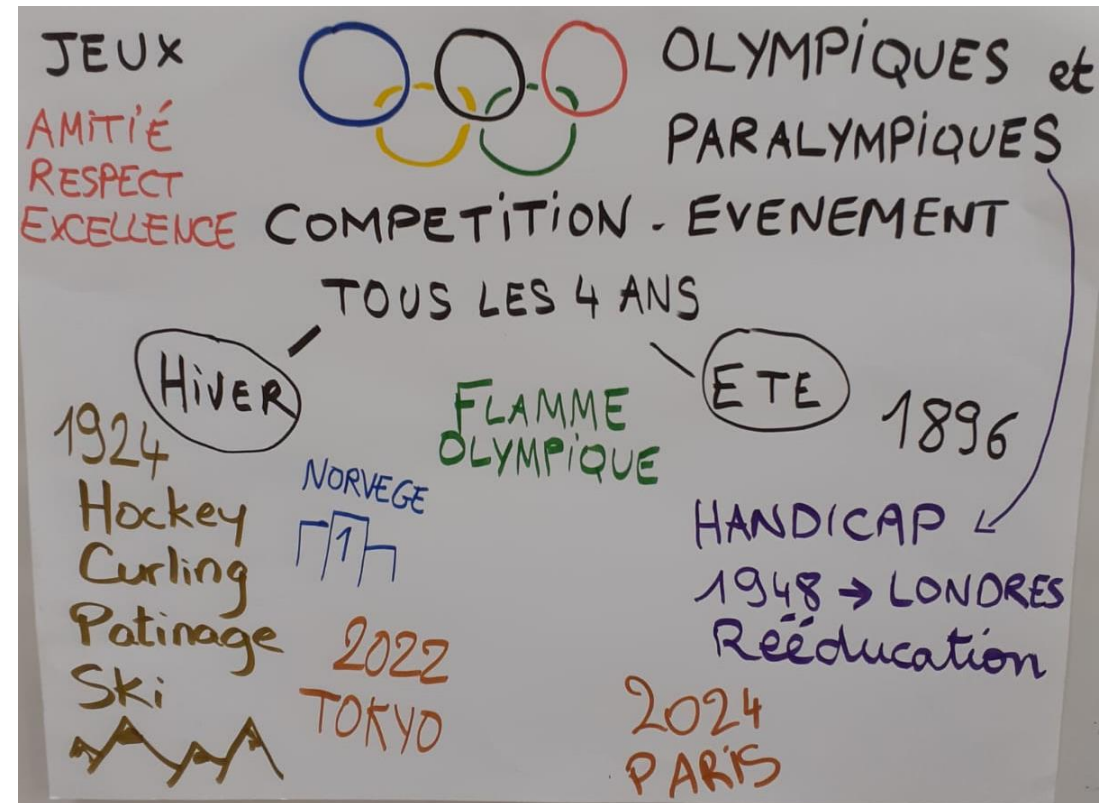 JEUX
OLYMPIQUES et
PARALYMPIQUES
AMITIÉ
RESPECT
EXCELLENCE
COMPETITION - EVENEMENT
TOUS LES 4 ANS
HIVER
ETE
1924
Hockey
Curling
Patinage
Ski
NORVEGE
1
FLAMME
OLYMPIQUE
1896
HANDICAP
1948 → LONDRES
Rééducation
2022
TOKYO
2024
PARIS